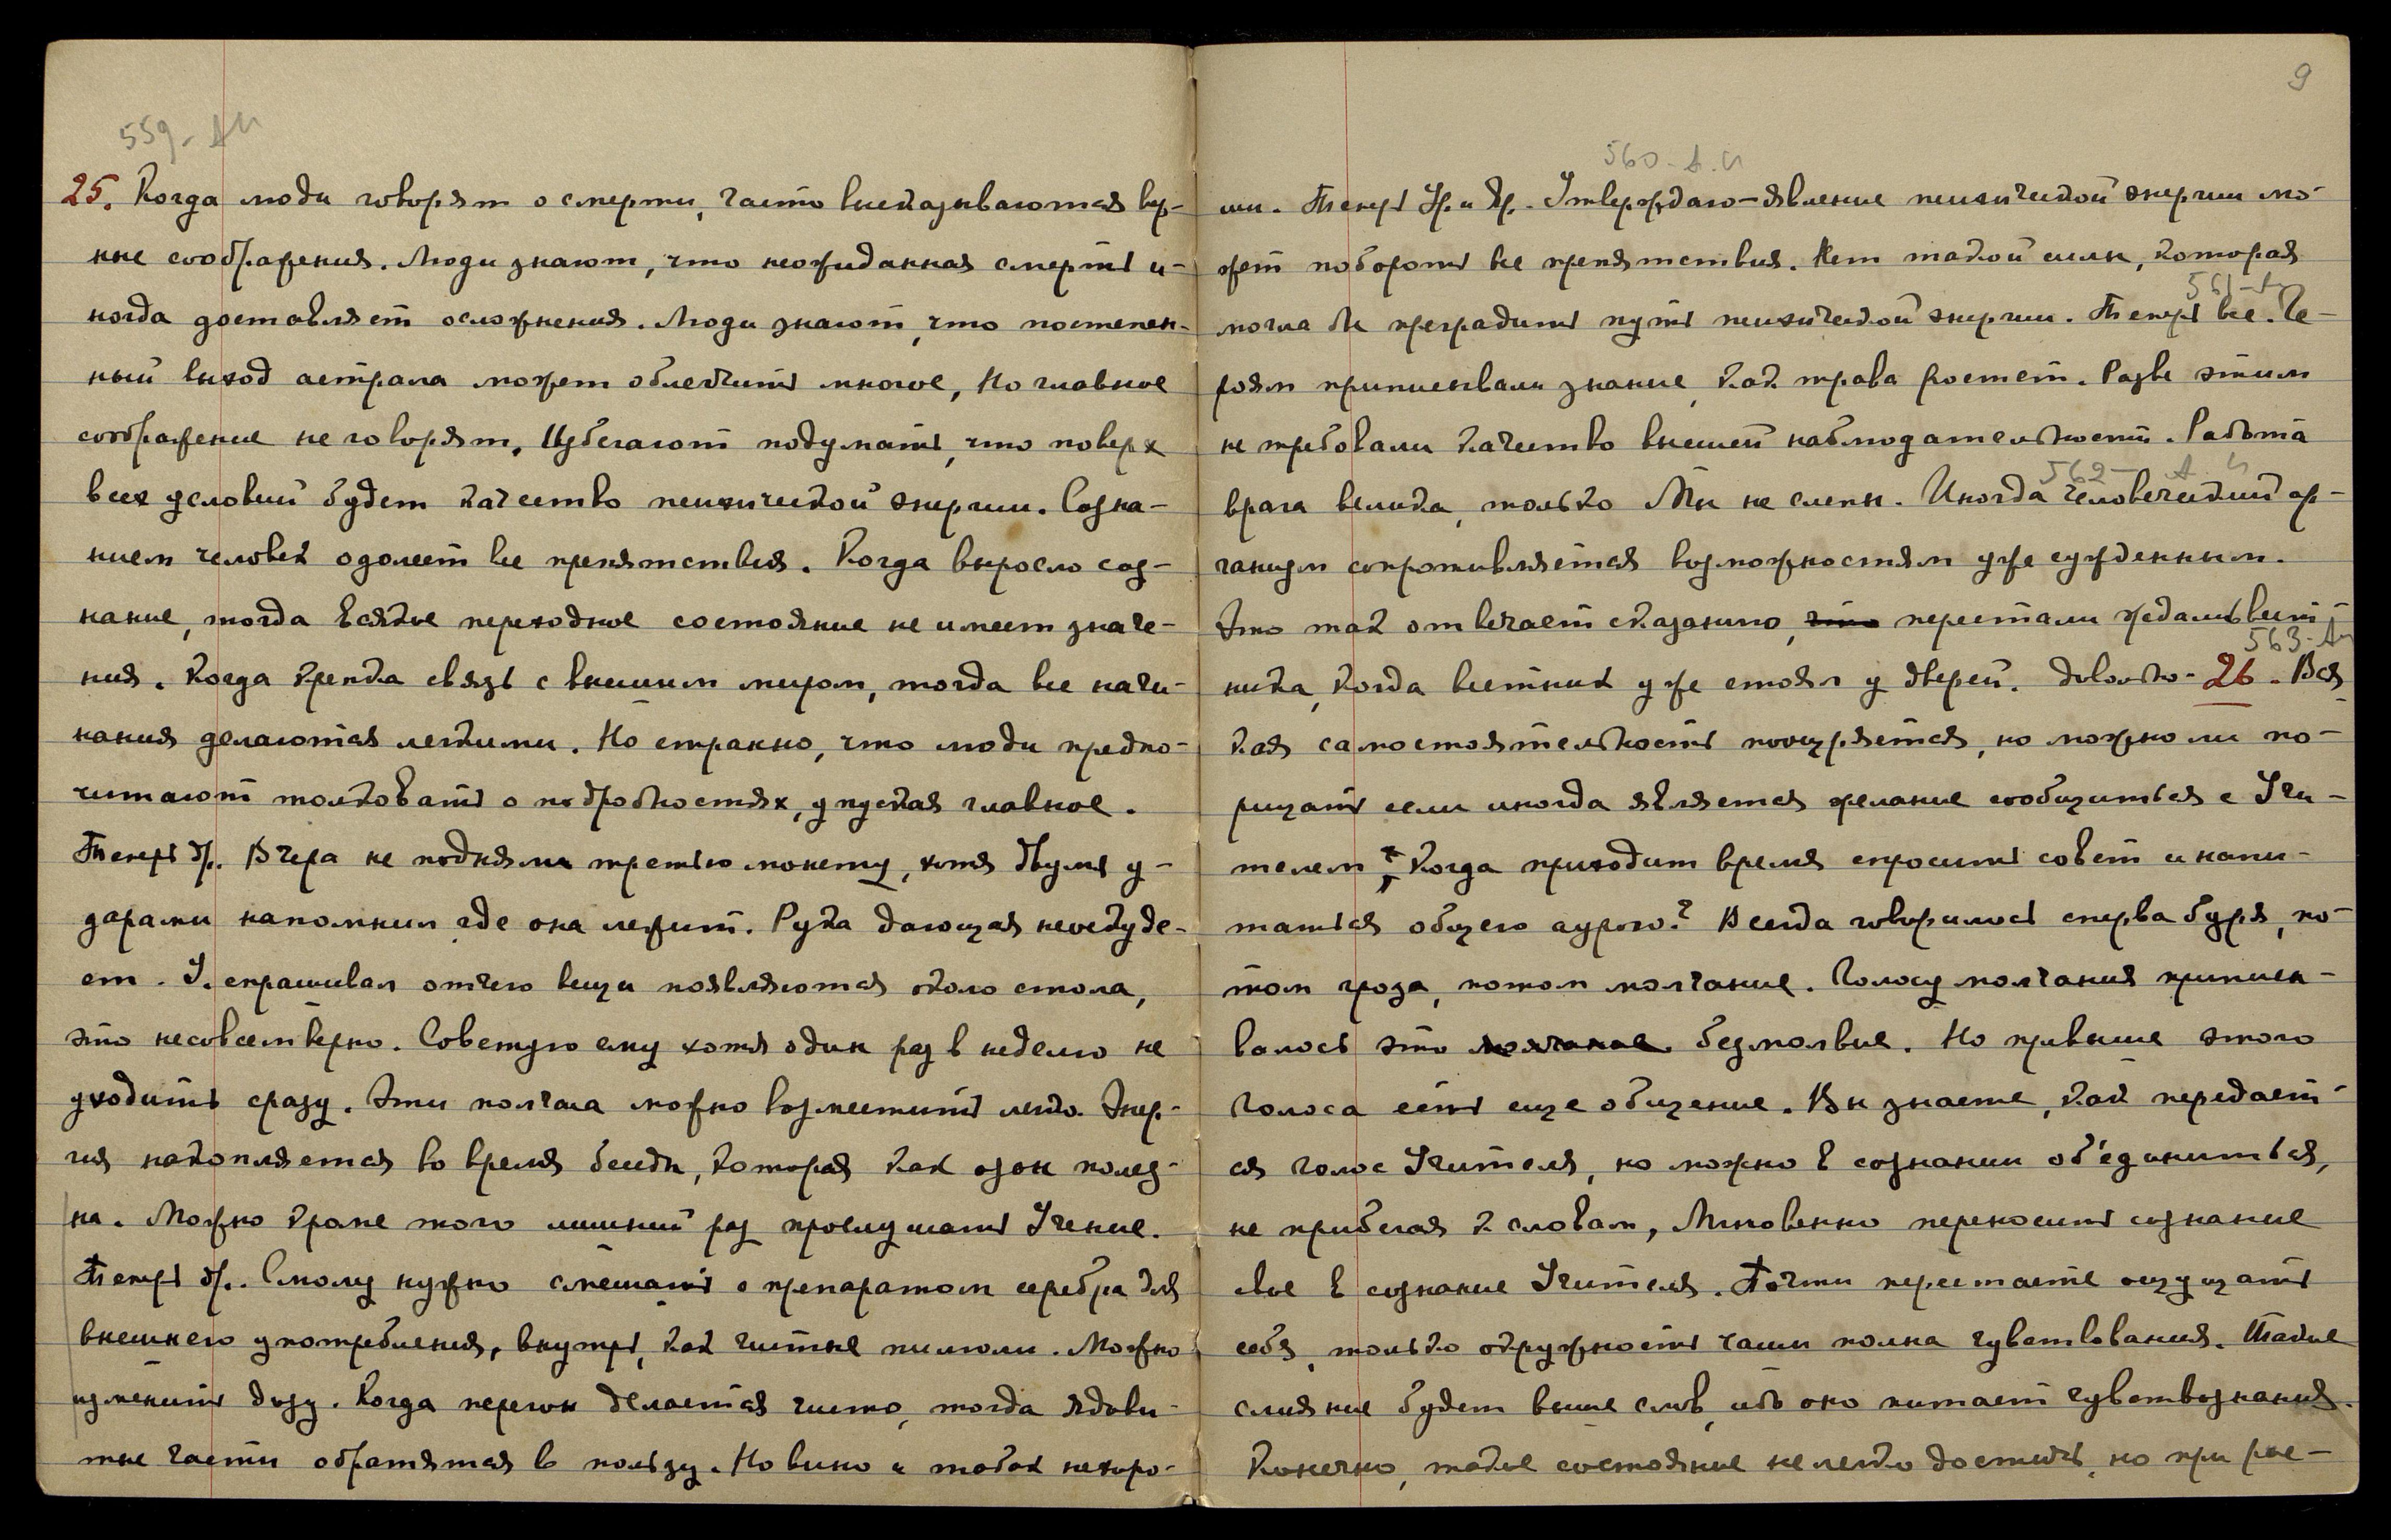 559 - АИ
25. Когда люди говорят о смерти, часто высказываются вер-
ные соображения. Люди знают, что неожиданная смерть и-
ногда доставляет осложнения. Люди знают, что постепен-
ный выход астрала может облегчить многое, Но главное
соображение не говорят. Избегают подумать, что поверх
всех условий будет качество психической энергии. Созна-
нием человек одолеет все препятствия. Когда выросло соз-
нание, тогда всякое переходное состояние не имеет значе-
ния. Когда крепка связь с внешним миром, тогда все начи-
нания делаются легкими. Но странно, что люди предпо-
читают толковать о подробностях, упуская главное.
Теперь др. Вчера не подняли третью монету, хотя двумя у-
дарами напомнил где она лежит. Рука дающая неоскуде-
ет. У. спрашивал отчего вещи появляются около стола,
это несовсем верно. Советую ему хотя один раз в неделю не
уходить сразу. Эти полчаса можно возместить легко. Энер-
гия накопляется во время беседы, которая как озон полез-
на. Можно кроме того лишний раз прослушать Учение.
Теперь др. Смолу нужно смешать с препаратом серебра для
внешнего употребления, внутрь, как чистые пилюли. Можно
изменить дозу. Когда перегон делается чисто, тогда ядови-
тые части обратятся в пользу. Но вино и табак нехоро-
9
560 - А.И
ши. Теперь Ур. и Др. Утверждаю - явление психической энергии мо-
жет побороть все препятствия. Нет такой силы, которая
561 - АИ
могла бы преградить путь психической энергии. Теперь все. Ге-
роям приписывали знание, как трава ростет. Разве этим
не требовали качество высшей наблюдательности. Работа
562 - А. И
врага велика, только Мы не слепы. Иногда человеческий ор-
ганизм сопротивляется возможностям уже сужденным.
Это так отвечает сказанию, что перестали ждать вест-
563 - АИ
ника, когда вестник уже стоял у дверей. Довольно - 26. Вся-
кая самостоятельность поощряется, но можно ли по-
рицать если иногда является желание сообщиться с Учи-
телем? Когда приходит время спросить совет и напи-
таться общею аурою? Всегда говорилось сперва буря, по-
том гроза, потом молчание. Голосу молчания приписы-
валось это молчание безмолвие. Но превыше этого
голоса есть еще общение. Вы знаете, как передает-
ся голос Учителя, но можно в сознании об'единиться,
не прибегая к словам, Мгновенно переносить сознание
свое в сознание Учителя. Почти перестаете ощущать
себя, только окружность чаши полна чувствования. Такое
слияние будет выше слов, ибо оно питает чувствознание.
Конечно, такое состояние не легко достичь, но при рос-